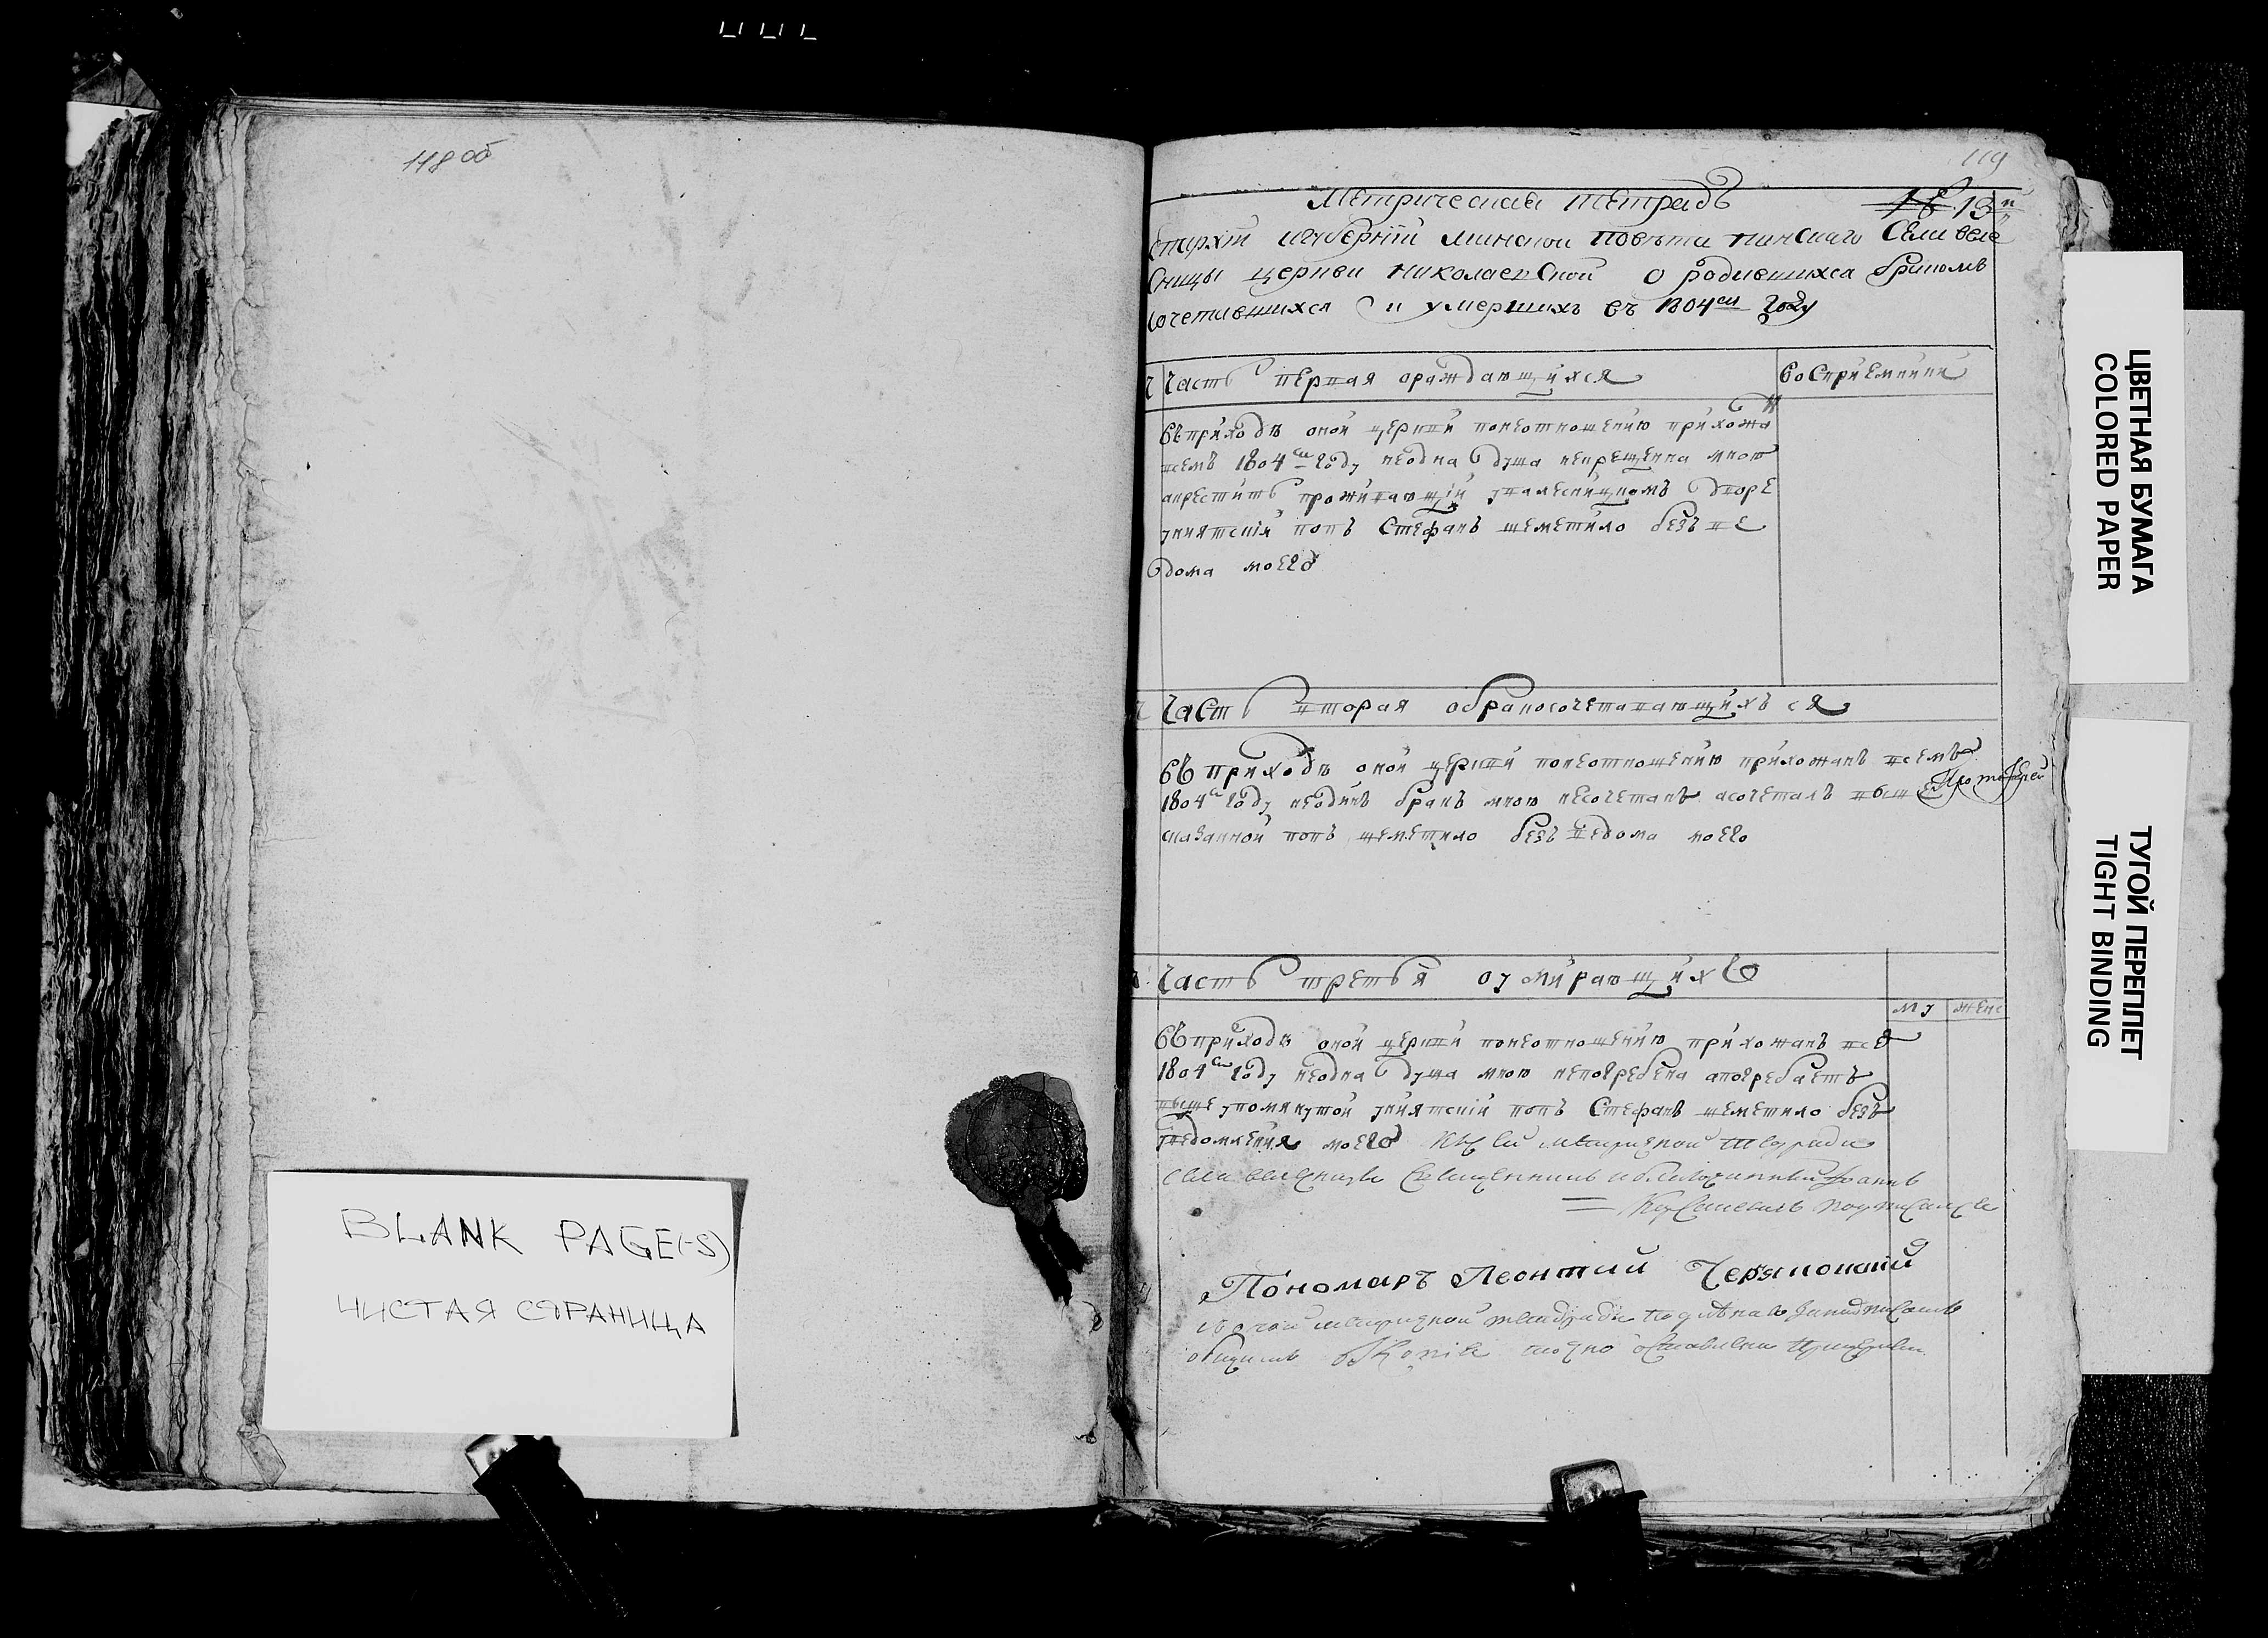 118 об
119
Метрическая тетрадь
13й
Епархіи игуберніи минской повѣта пинскаго Села веле
сницы церкви николаевской о родившихся бракомъ
сочетавшихся и умершихъ въ 1804ом году
Часть первая ораждающихся
воспріемники
въ приходѣ оной церкви понеотношенію прихожа
всемъ 1804м году неодна душа некрещенна мною
акреститъ проживающій увелесницкомъ дворе
униятскій попъ Стефанъ шеметило безъ ве
дома моего
Часть вторая обракосочетавающихъся
въ приходѣ оной церкви понеотношенію прихожанъ всемъ
1804м году неодинъ бракъ мною несочетанъ асочеталъ выше
сказанной попъ шеметило безъ ведома моего
Часть третья оумирающихъ
му
женс
въ приходѣ оной церкви понеотношенію прихожанъ все
1804м году неодна душа мною непогребена апогребаетъ
выше упомянутой униятскій попъ Стефанъ шеметило безъ
ведомленія моего Къ сей метрической тетради
села велесницы священникъ иблагочинный Іоаннъ
подписался
Пономаръ Леонтий
BLANK PAGE(-S)
ЧИСТАЯ СТРАНИЦА
ЦВЕТНАЯ БУМАГА
COLORED PAPER
ТУГОЙ ПЕРЕПЛЕТ
TIGHT BINDING